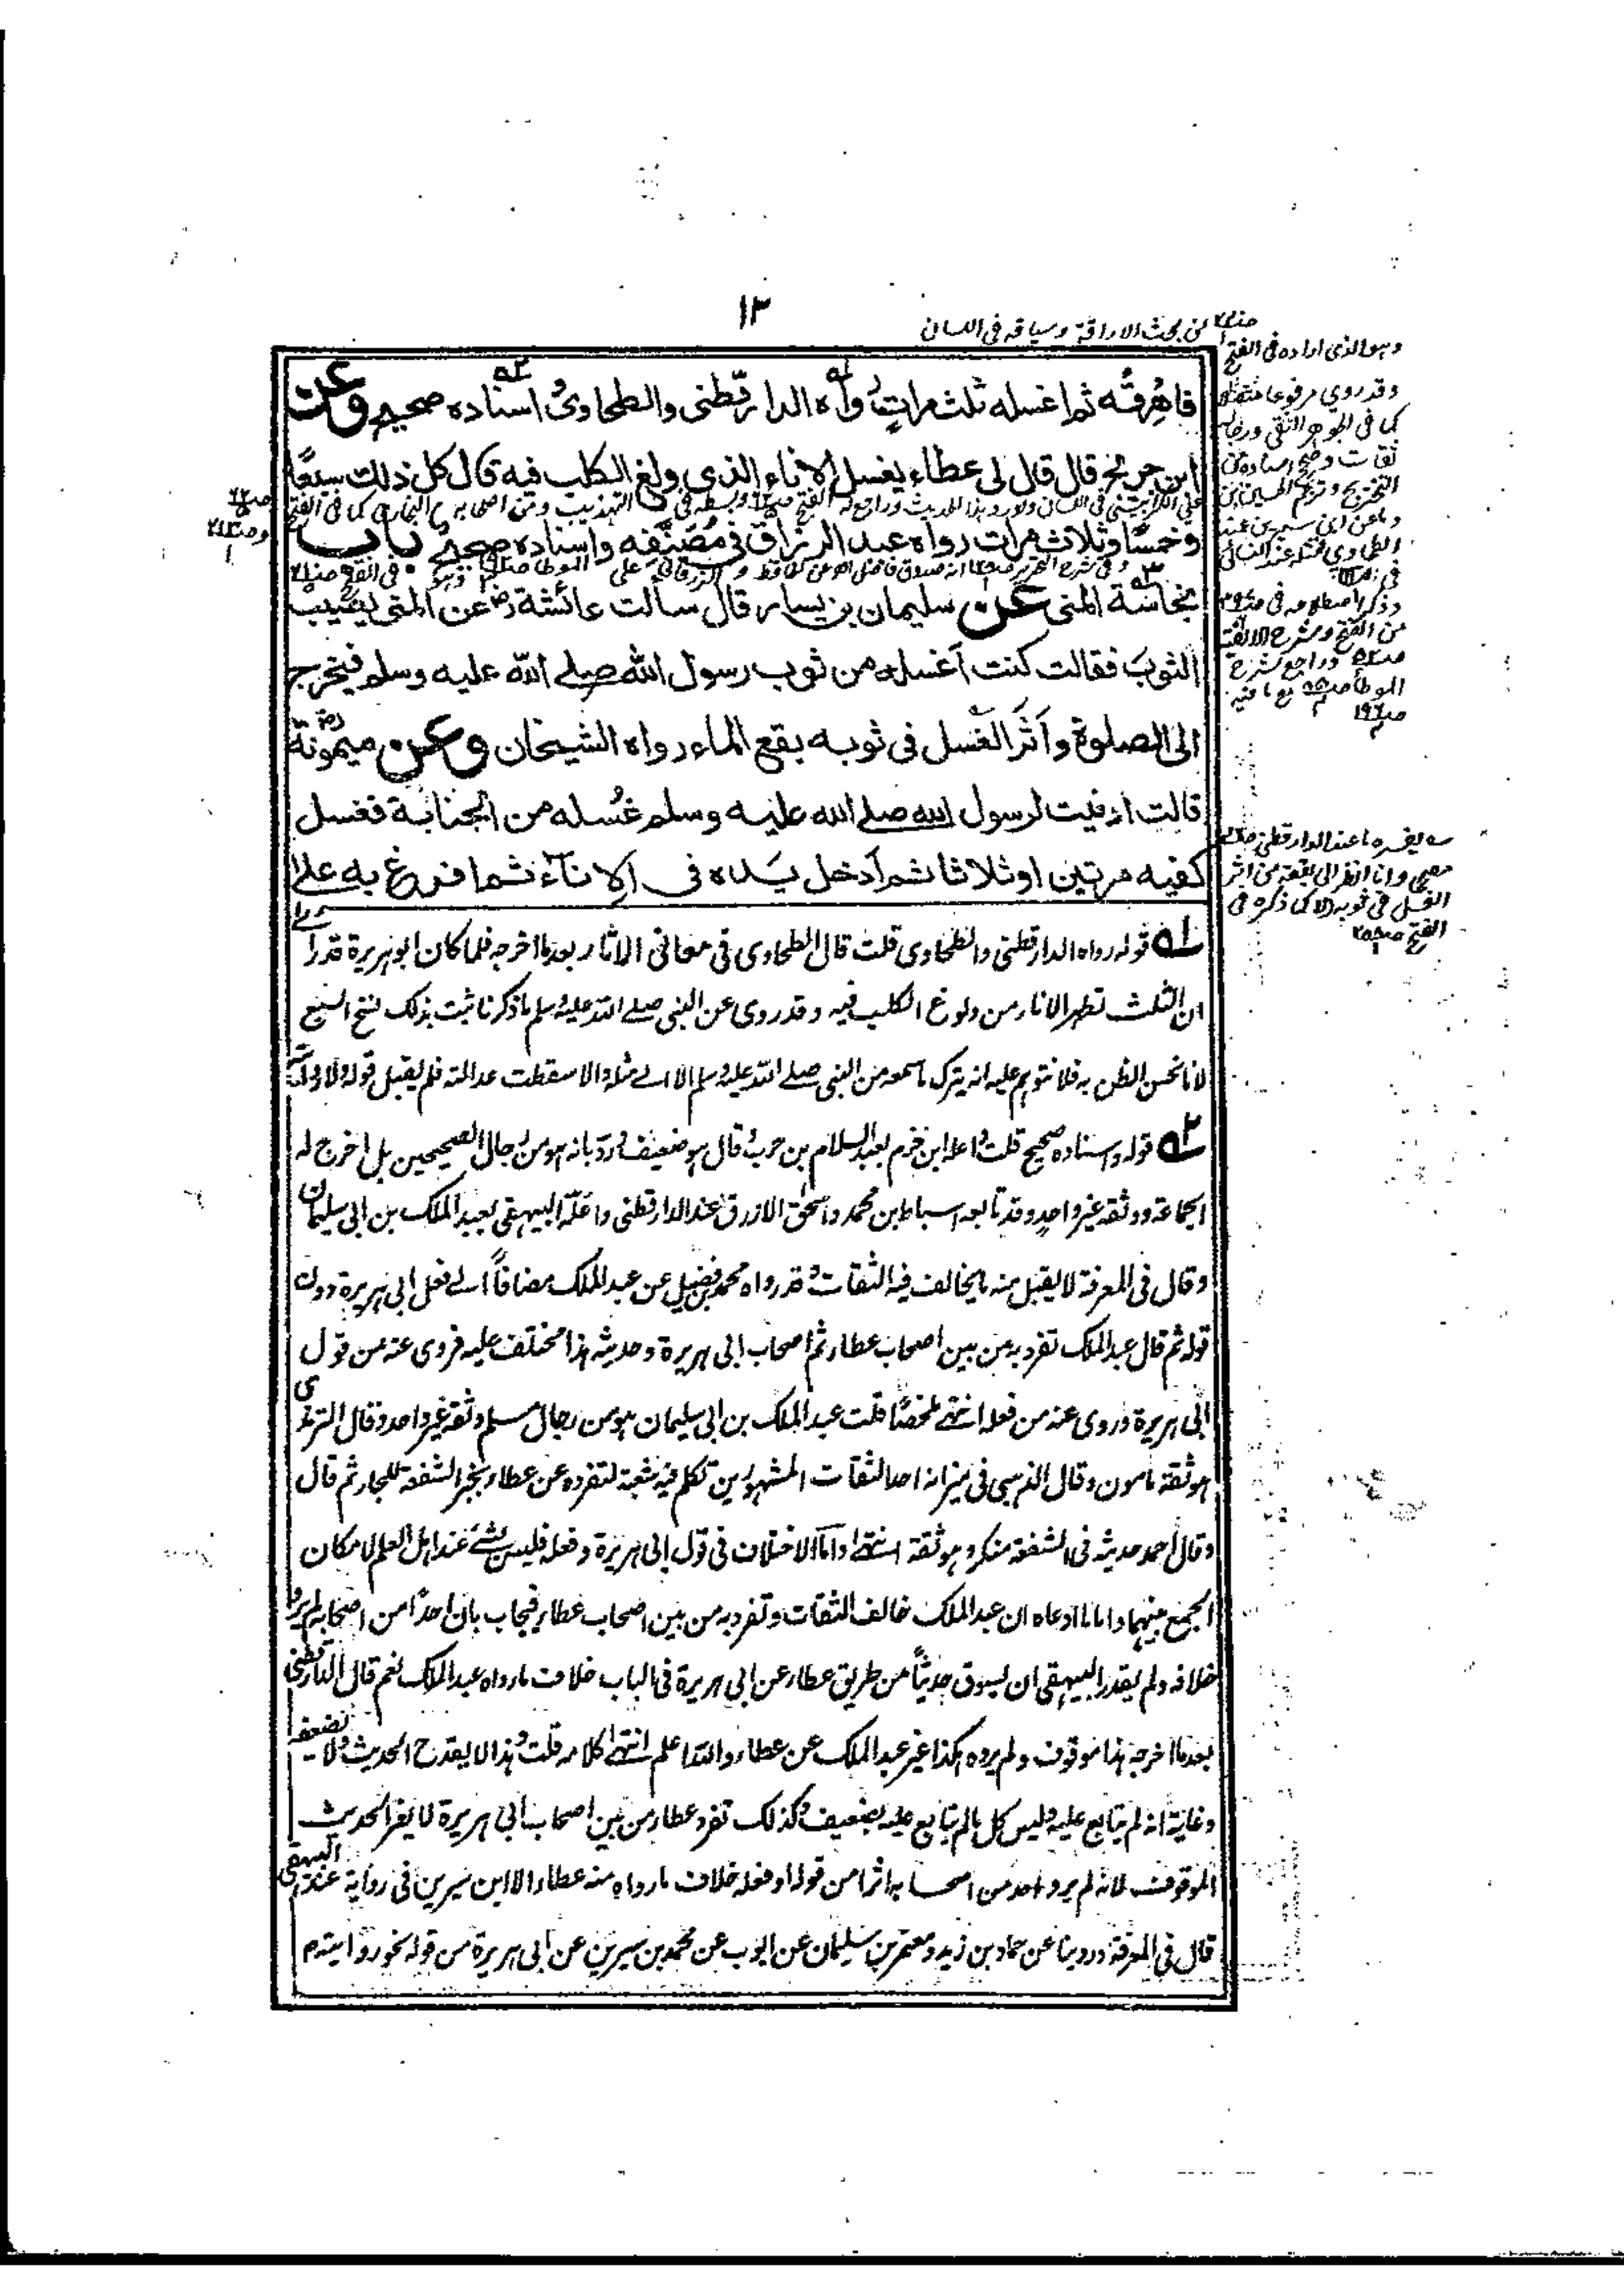 ١٣
فاهرقه ثم اغسله ثلث مرات رواه الدارقطنى والطحاوى اسناده صحيح وعن
ابن جريج قال قال لى عطاء يغسل الاناء الذى ولغ الكلب فيه قال كل ذلك سبعًا
وخمسًا وثلاث مرات رواه عبد الرزاق فى مصنفه واسناده صحيح باب
نجاسة المنى عن سليمان بن يسار قال سالت عائشة رض عن المنى يصيب
الثوب فقالت كنت اغسله من ثوب رسول الله صلى الله عليه وسلم فيخرج
الى الصلوة واثر الغسل فى ثوبه بقع الماء رواه الشيخان وعن ميمونة رض
قالت ادنيت لرسول الله صلى الله عليه وسلم غسله من الجنابة فغسل
كفيه مرتين او ثلاثا ثم ادخل يده فى الاناء ثم افرغ به على
١ قوله رواه الدارقطنى والطحاوى قلت قال الطحاوى فى معانى الاثار بعد ما اخرجه فلما كان ابو هريرة قد رأى
ان الثلث تطهر الاناء من ولوغ الكلب فيه وقد روى عن النبى صلى الله عليه وسلم ما ذكرنا ثبت بذلك نسخ السبع
لانا نحسن الظن به فلا نتوهم عليه انه يترك ما سمعه من النبى صلى الله عليه وسلم الا الى مثله والا سقطت عدالته فلم يقبل قوله ولا روايته
٢ قوله واسناده صحيح قلت اعله ابن حزم بعبد السلام بن حرب وقال هو ضعيف ورد بانه هو من رجال الصحيحين بل اخرج له
الجماعة ووثقه غير واحد وقد تابعه اسباط بن محمد واسحق الازرق عند الدارقطنى واعله البيهقى بعبد الملك بن ابى سليمان
وقال فى المعرفة لا يقبل منه ما يخالف فيه الثقات وقد رواه محمد بن فضيل عن عبد الملك مضافاً الى فعل ابى هريرة دون
قوله ثم قال عبد الملك تفرد به من بين اصحاب عطاء ثم اصحاب ابى هريرة وحديثه هذا مختلف عليه فروى عنه من قول
ابى هريرة وروى عنه من فعله انتهى ملخصًا قلت عبد الملك بن ابى سليمان هو من رجال مسلم وثقه غير واحد وقال الترمذى
هو ثقة مامون وقال الذهبى فى ميزانه احد الثقات المشهورين تكلم فيه شعبة لتفرده عن عطاء بخبر الشفعة للجار ثم قال
وقال احمد حديثه فى الشفعة منكر وهو ثقة انتهى واما الاختلاف فى قول ابى هريرة وفعله فليس بشئ عند اهل العلم لامكان
الجمع بينهما واما ما ادعاه ان عبد الملك خالف الثقات وتفرد به من بين اصحاب عطاء فيجاب بان احدًا من اصحابه لم يرو
خلافه ولم يقدر البيهقى ان يسوق حديثاً من طريق عطاء عن ابى هريرة فى الباب خلاف ما رواه عبد الملك نعم قال الدارقطنى
بعد ما اخرجه هذا موقوف ولم يروه هكذا غير عبد الملك عن عطاء والله اعلم انتهى كلامه قلت وهذا لا يقدح الحديث ولا يضعفه
وغايته انه لم يتابع عليه وليس كل ما لم يتابع عليه بضعيف وكذلك تفرد عطاء من بين اصحاب ابى هريرة لا يضر الحديث
الموقوف لانه لم يرو احد من اصحابه اثرا من قوله او فعله خلاف ما رواه منه عطاء الا ابن سيرين فى رواية عند البيهقى
قال فى المعرفة وروينا عن حماد بن زيد ومعتمر بن سليمان عن ايوب عن محمد بن سيرين عن ابى هريرة من قوله نحو روايته م
من بحث الاراقة وسياقه فى اللسان
وهو الذى اراده فى الفتح
وقد روي مرفوعا
كما فى الجوهر النقى
من الفتح وشرح الالفية
وراجع شرح
الغسل فى ثوبه